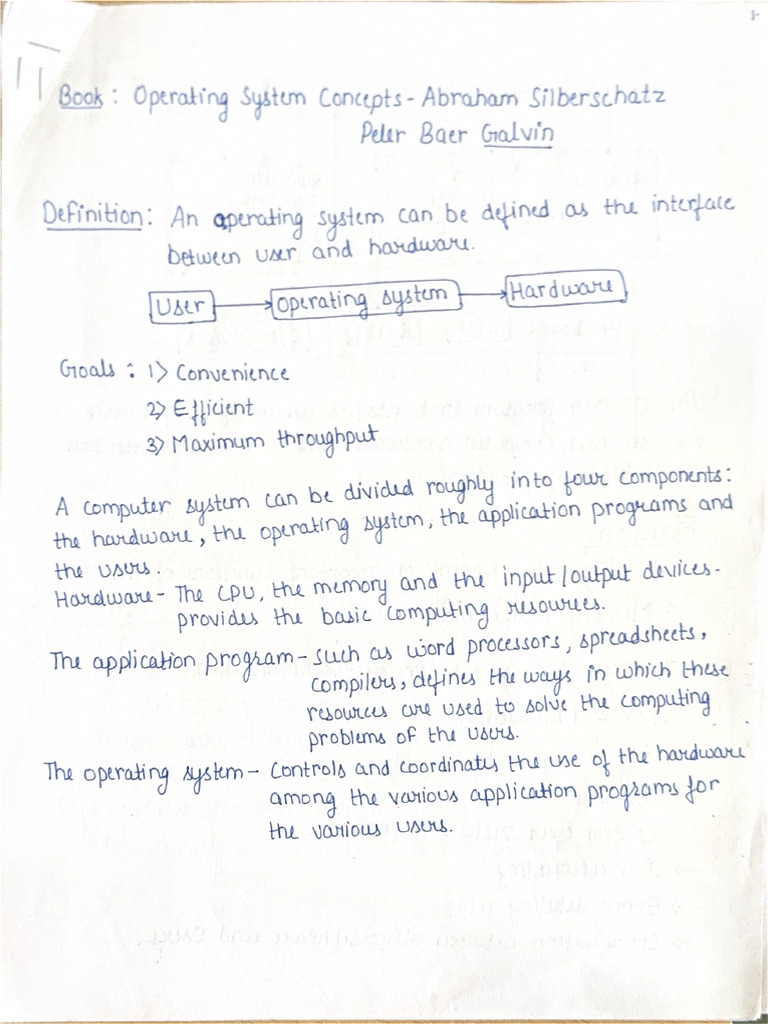 Book: Operating System Concepts - Abraham Silberschatz
Peter Baer Galvin
Definition: An operating system can be defined as the interface
between user and hardware.
User → Operating system → Hardware
Goals: 1) Convenience
2) Efficient
3) Maximum throughput
A computer system can be divided roughly into four components:
the hardware, the operating system, the application programs and
the users.
Hardware - The CPU, the memory and the input/output devices -
provides the basic computing resources.
The application program - such as word processors, spreadsheets,
compilers, defines the ways in which these
resources are used to solve the computing
problems of the users.
The operating system - Controls and coordinates the use of the hardware
among the various application programs for
the various users.